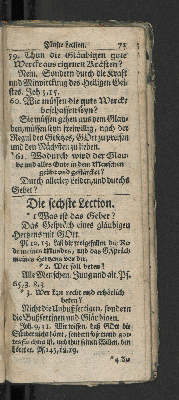 Fünfte Lection. 73
59. Thun die Gläubigen gute
Wercke aus eigenen Kräften?
Nein. Sondern durch die Kraft
und Mitwirckung des Heiligen Gei-
stes. Joh 3,15.
60. Wie müssen die gute Wercke
beschaffen seyn?
Sie müssen gehen aus dem Glau-
ben, müssen seyn freywillig, nach der
Regul des Gesetzes, GOtt zu preisen
und den Nächsten zu dienen.
*61. Wodurch wird der Glaube
und alles Gute in den Menschen
geübt und gestärcket?
Durch allerley Leiden, und durchs
Gebet?
Die sechste Lection.
*1 Was ist das Gebet?
Das Gespräch eines gläubigen
Hertzens mit GOtt.
Ps 19,15. laß dir wohlgefallen die Re-
de meines Mundes, und das Gespräch
meines Hertzens vor dir.
*2. Wer soll beten?
Alle Menschen, Jung und alt. Ps.
65,3. 8,3
*3. Wer kan recht und erhörlich
beten?
Nicht die Unbußfertigen, sondern
die Bußfertigen und Gläubigen.
Joh. 9,31. Wir wissen, daß GOtt die
Sünder nicht höret, sondern so jemand got-
tesfürchtig ist, und thut seinen Willen, den
höret er. Ps. 145,18,19.
*4 An